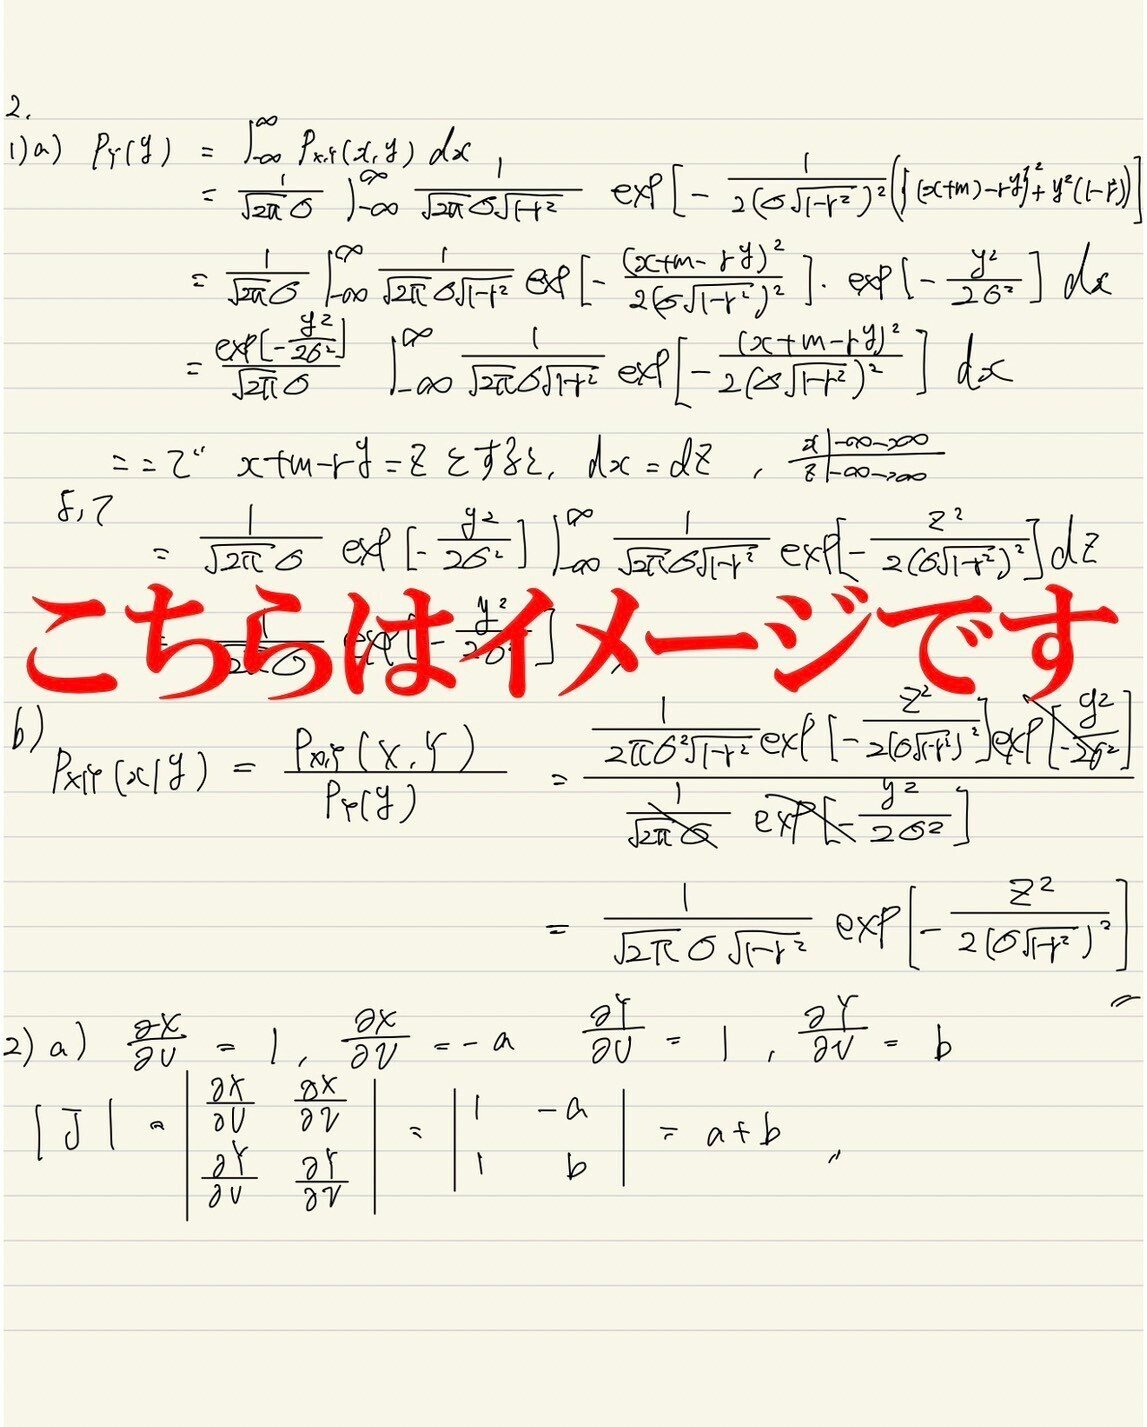 2.
1) a) P_Y(y) = ∫_{-∞}^{∞} P_{X,Y}(x,y) dx
= 1/(√2π σ) ∫_{-∞}^{∞} 1/(√2π σ√1-r²) exp[- 1/(2(σ√1-r²)²) ({(x+m)-ry}²+y²(1-r²))]
= 1/(√2π σ) ∫_{-∞}^{∞} 1/(√2π σ√1-r²) exp[- (x+m-ry)²/(2(σ√1-r²)²)] · exp[- y²/2σ²] dx
= exp[-y²/2σ²]/(√2π σ) ∫_{-∞}^{∞} 1/(√2π σ√1-r²) exp[- (x+m-ry)²/(2(σ√1-r²)²)] dx
ここで x+m-ry=z とすると, dx=dz , x|-∞→∞
z|-∞→∞
よって
= 1/(√2π σ) exp[- y²/2σ²] ∫_{-∞}^{∞} 1/(√2π σ√1-r²) exp[- z²/(2(σ√1-r²)²)] dz
= 1/(√2π σ) exp[- y²/2σ²]
こちらはイメージです
b)
P_{X|Y}(x|y) = P_{X,Y}(X,Y)/P_Y(y) = (1/(2πσ²√1-r²) exp[- z²/(2(σ√1-r²)²)] exp[- y²/2σ²])/(1/(√2π σ) exp[- y²/2σ²])
= 1/(√2π σ √1-r²) exp[- z²/(2(σ√1-r²)²)]
2) a) ∂X/∂U = 1, ∂X/∂V = -a ∂Y/∂U = 1, ∂Y/∂V = b
|J| = |∂X/∂U ∂X/∂V| = |1 -a| = a+b
|∂Y/∂U ∂Y/∂V| |1 b|